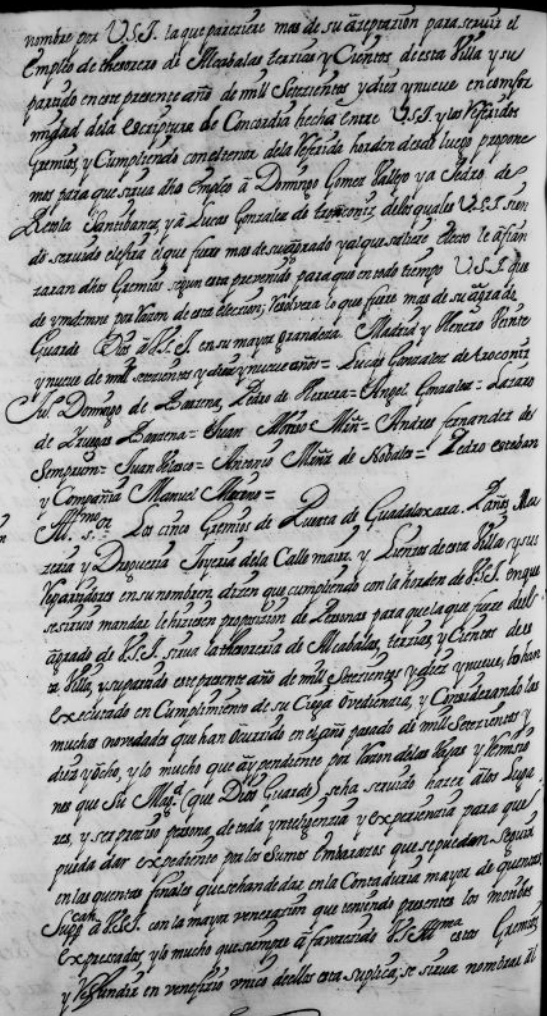 nombre por V.S.I. la que pareziere mas de su azeptazion para seruir el
Empleo de thesorero de Alcabalas terzias y Cientos de esta Villa y su
partido en este presente año de mill Setezientos y diez y nueue en comfor
midad dela escriptura de Concordia hecha entre V.S.I. y los Referidos
Gremios, y Cumpliendo con el tenor dela Referida horden desde luego propone
mos para que sirua dho empleo â Domingo Gomez Vallejo y a Pedro de
Retola Santibanez, y â Lucas Gonzalez de troconiz, delos quales V.S.I. sien
do seruido elejirâ el que fuere mas de su agrado y al que saliere electo le afian
zaran dhos Gremios segun esta preuenido para que en todo tiempo V.S.I. que
de yndemne por Razon de esta eleccion; Resoluera lo que fuere mas de su agrado
Guarde Dios a V.S.I. en su mayor grandeza. Madrid y Henero Veinte
y nueue de mill setezientos y diez y nueue años= Lucas Gonzalez de troconiz
Domingo de Barzena, Pedro de Herrera= Angel Gonzalez= Lazaro
de Zruegas Barzena= Juan Alonso Miñ= Andres fernandez de
Semprum= Juan Velasco= Antonio Muñiz de Nobales= Pedro esteban
y Compañia Manuel Moreno=
Los cinco Gremios de Puerta de Guadalaxara. Paños Mer
zeria y Drogueria Joyeria dela Calle maior. y Lienzos de esta Villa y sus
Repartidores en su nombre, dizen que cumpliendo con la horden de V.S.I. en que
se siruio mandar le hiziesen proposizion de Personas para que la que fuere del
agrado de V.S.I. sirua la thesoreria de Alcabalas, terzias, y Cientos de es
ta Villa, y su partido este presente año de mill Setezientos y diez y nueue, lo han
executado en Cumplimiento de su Ciega Ovedienzia, y Considerando las
muchas novedades que han Ocurrido en el año pasado de mill Setezientos y
diez y ôcho, y lo mucho que ay pendiente por Razon delas Vajas y Remisio
nes que Su Magd. (que Dios Guarde) se ha seruido hazer âlos Luga
res, y ser preziso persona, de toda ynteligenzia y experienzia para que
pueda dar expediente por los Sumos embarazos que se puedan seguir
en las quentas finales que se han de dar en la Contaduria mayor de quentas
Suppcan â V.S.I. con la mayor venerazion que teniendo presentes los motibos
expressados, y lo mucho que siempre â fauorezido V.S.Illma estos Gremios
y Refundir en venefizio vnico de ellos esta suplica; se sirua nombrar al